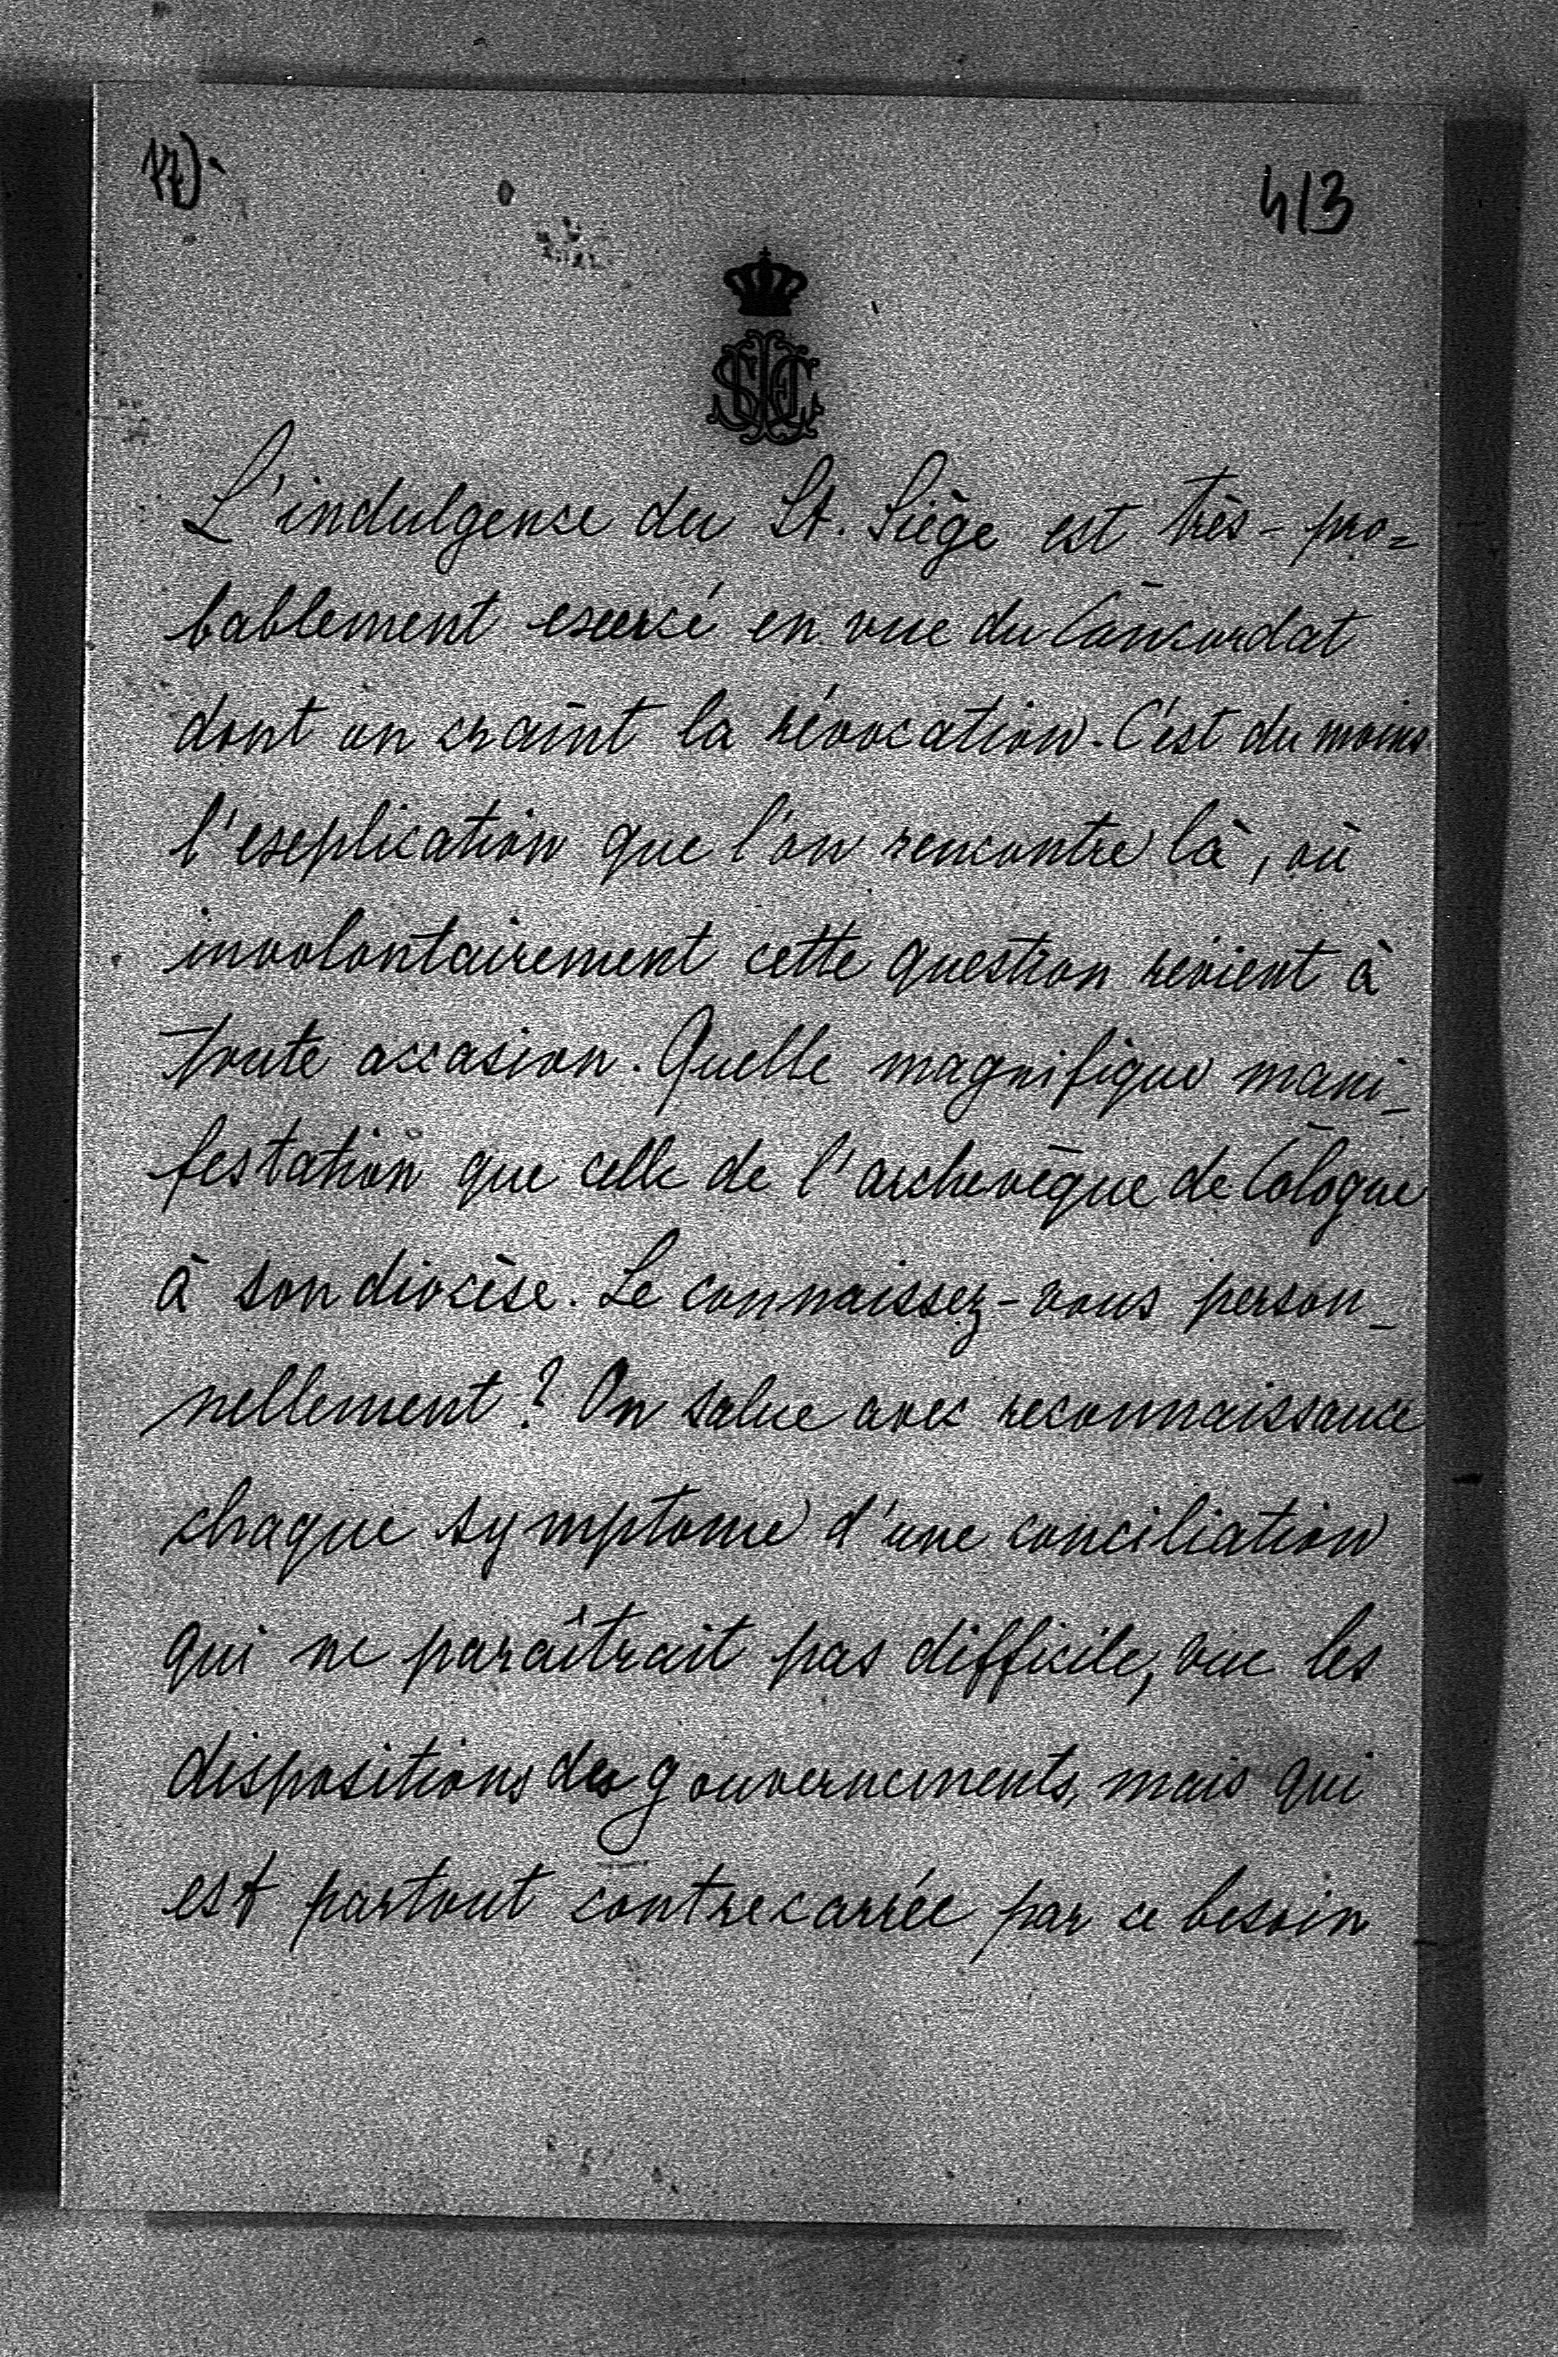 17)
413
L'indulgence du St. Siège est très-pro=
bablement exercé en vue du Concordat
dont on craint la révocation. C'est du moins
l'explication que l'on rencontre là, où
involontairement cette question revient à
toute occasion. Quelle magnifique mani_
festation que celle de l'archevêque de Cologne
à son diocèse. Le connaissez-vous person_
nellement? On salue avec reconnaissance
chaque symptome d'une conciliation
qui ne paraîtrait pas difficile, vue les
dispositions des gouvernements, mais qui
est partout contrecarrée par ce besoin